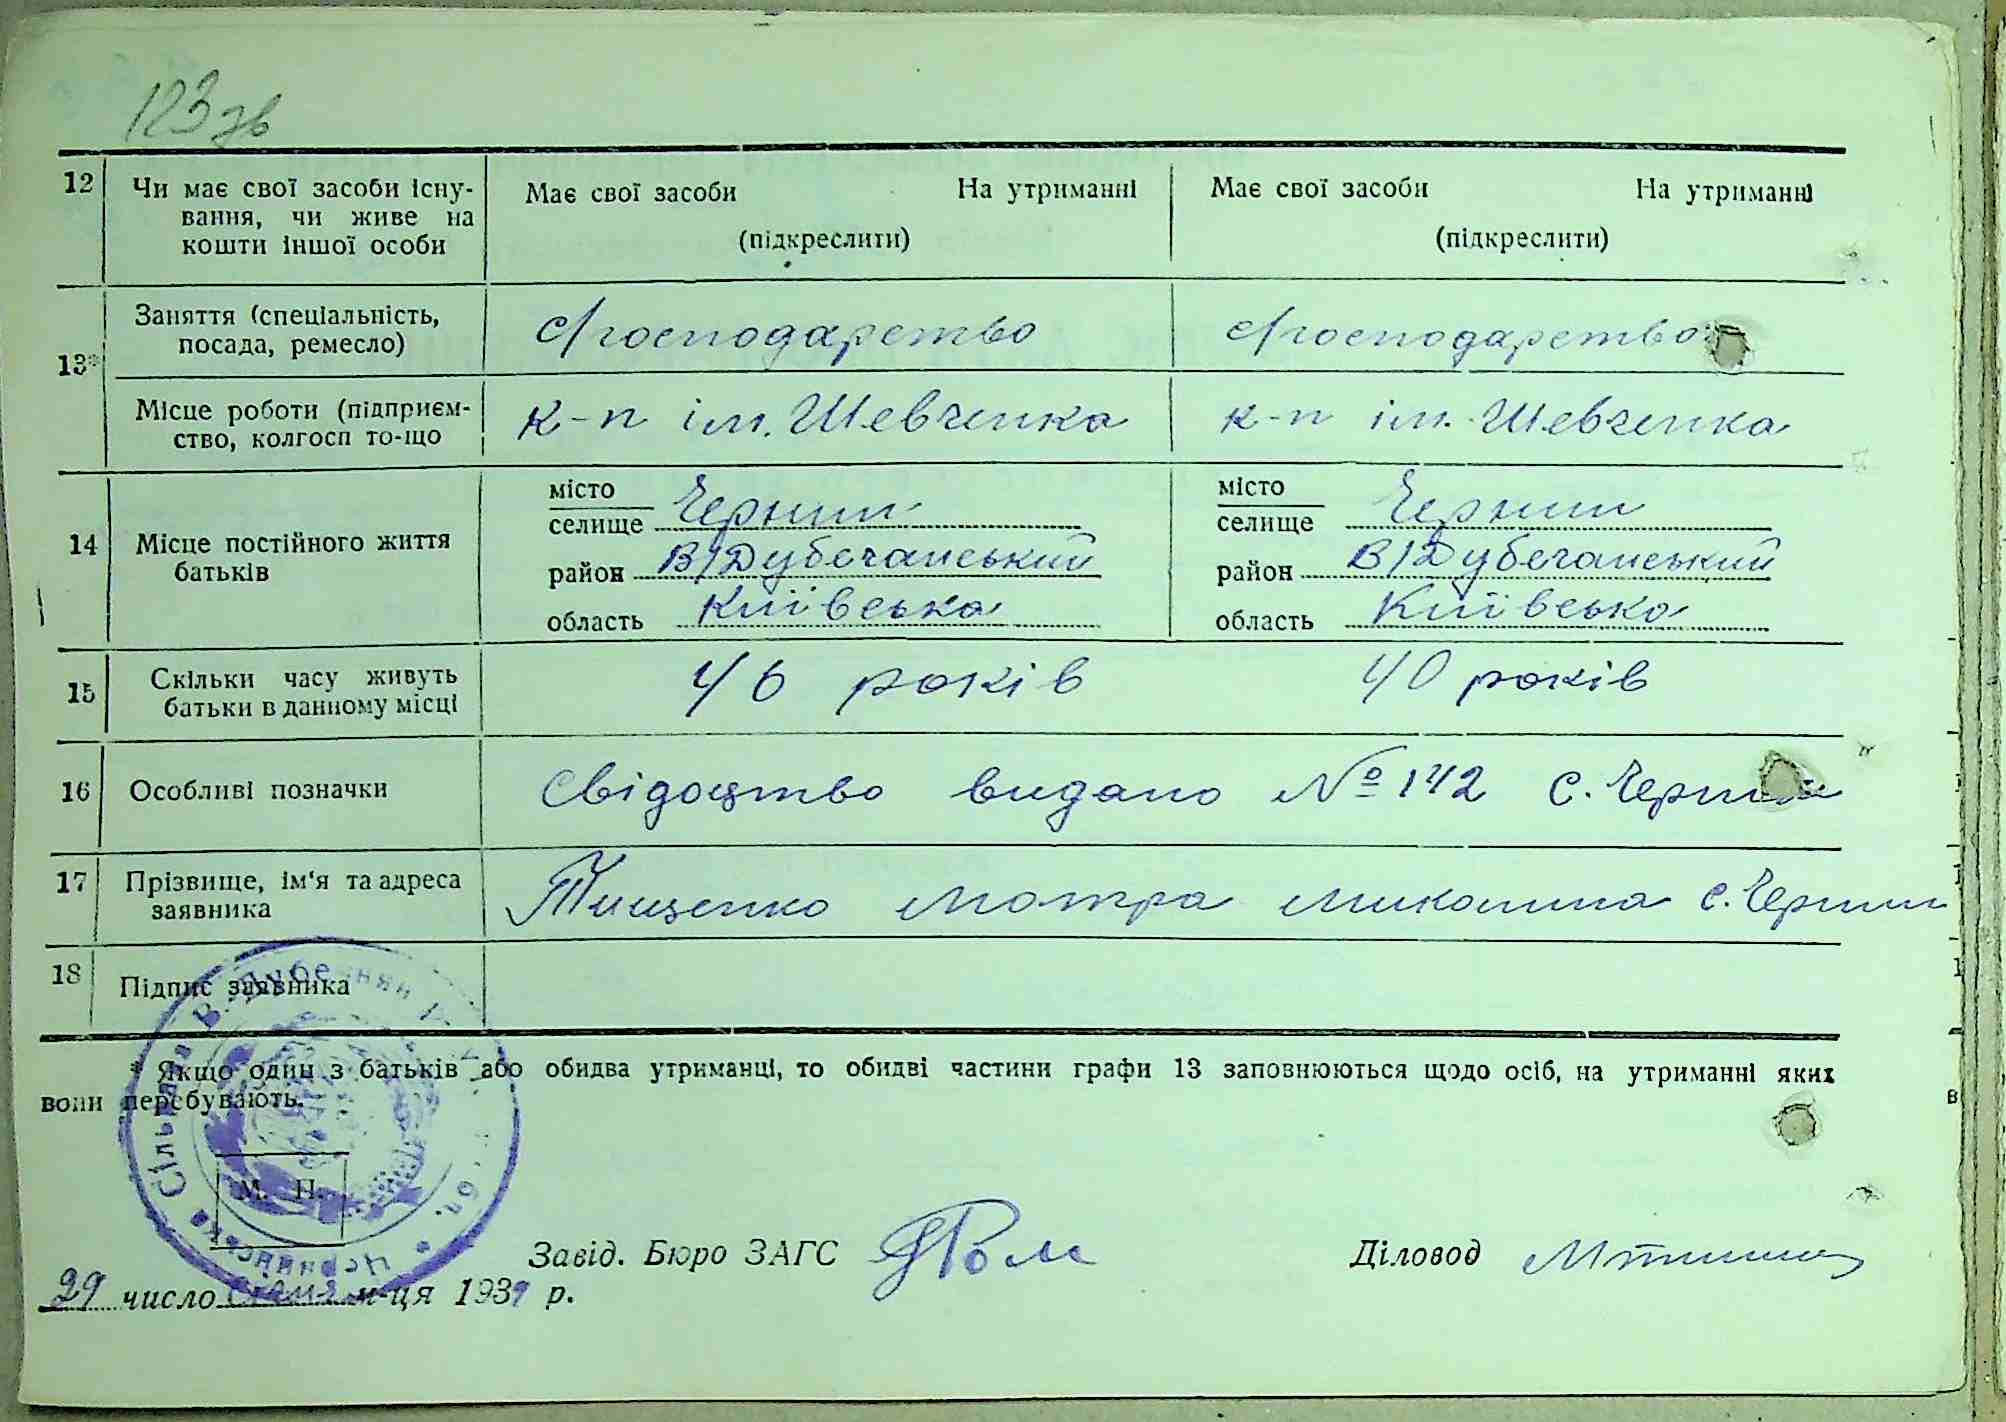 123 зв
12 Чи має свої засоби існу-
вання, чи живе на
кошти іншої особи
Має свої засоби На утриманні
(підкреслити)
Має свої засоби На утриманні
(підкреслити)
13*
Заняття (спеціальність,
посада, ремесло)
с/господарство
с/господарство
Місце роботи (підприєм-
ство, колгосп то-що
к-п ім. Шевченка
к-п ім. Шевченка
14 Місце постійного життя
батьків
місто
селище Чернин
район В/Дубечанський
область Київська
місто
селище Чернин
район В/Дубечанський
область Київська
15 Скільки часу живуть
батьки в данному місці
46 років
40 років
16 Особливі позначки
Свідоцтво видано № 142 с. Чернин
17 Прізвище, ім'я та адреса
заявника
Тищенко Мотра Миколина с. Чернин
18 Підпис заявника
* Якщо один з батьків або обидва утриманці, то обидві частини графи 13 заповнюються щодо осіб, на утриманні яких
вони перебувають.
М. П.
Чернинська Сільська В.-Дубечан
Завід. Бюро ЗАГС
Діловод
29 число м-ця 1939 р.